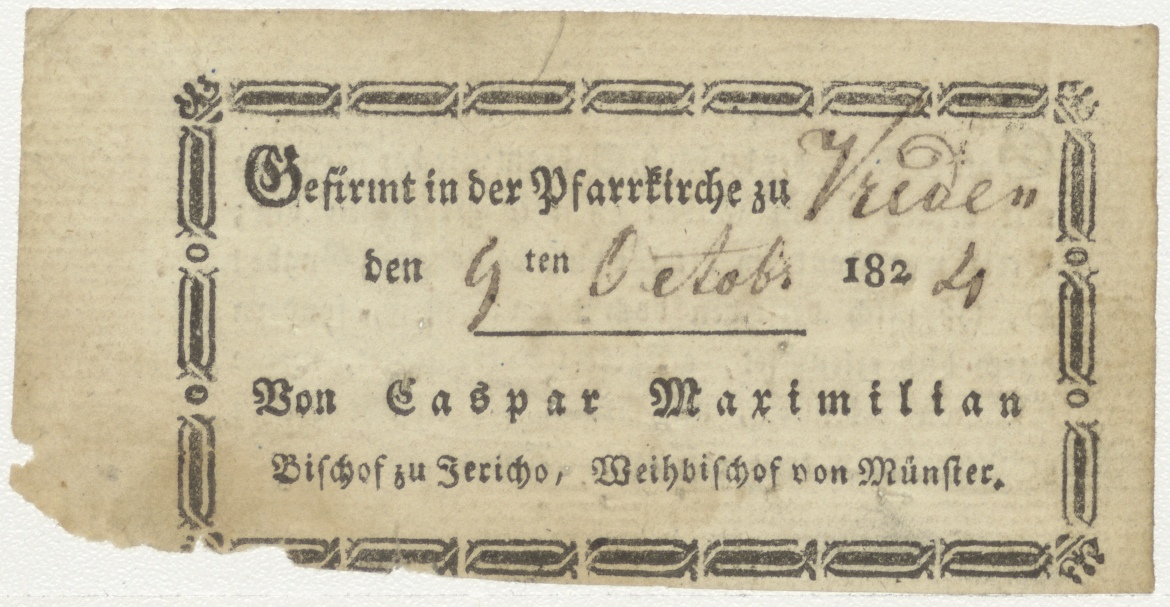 Gefirmt in der Pfarrkirche zu Vreden
den 9 ten Octobr 1824
Von Caspar Maximilian
Bischof zu Jericho, Weihbischof von Münster.